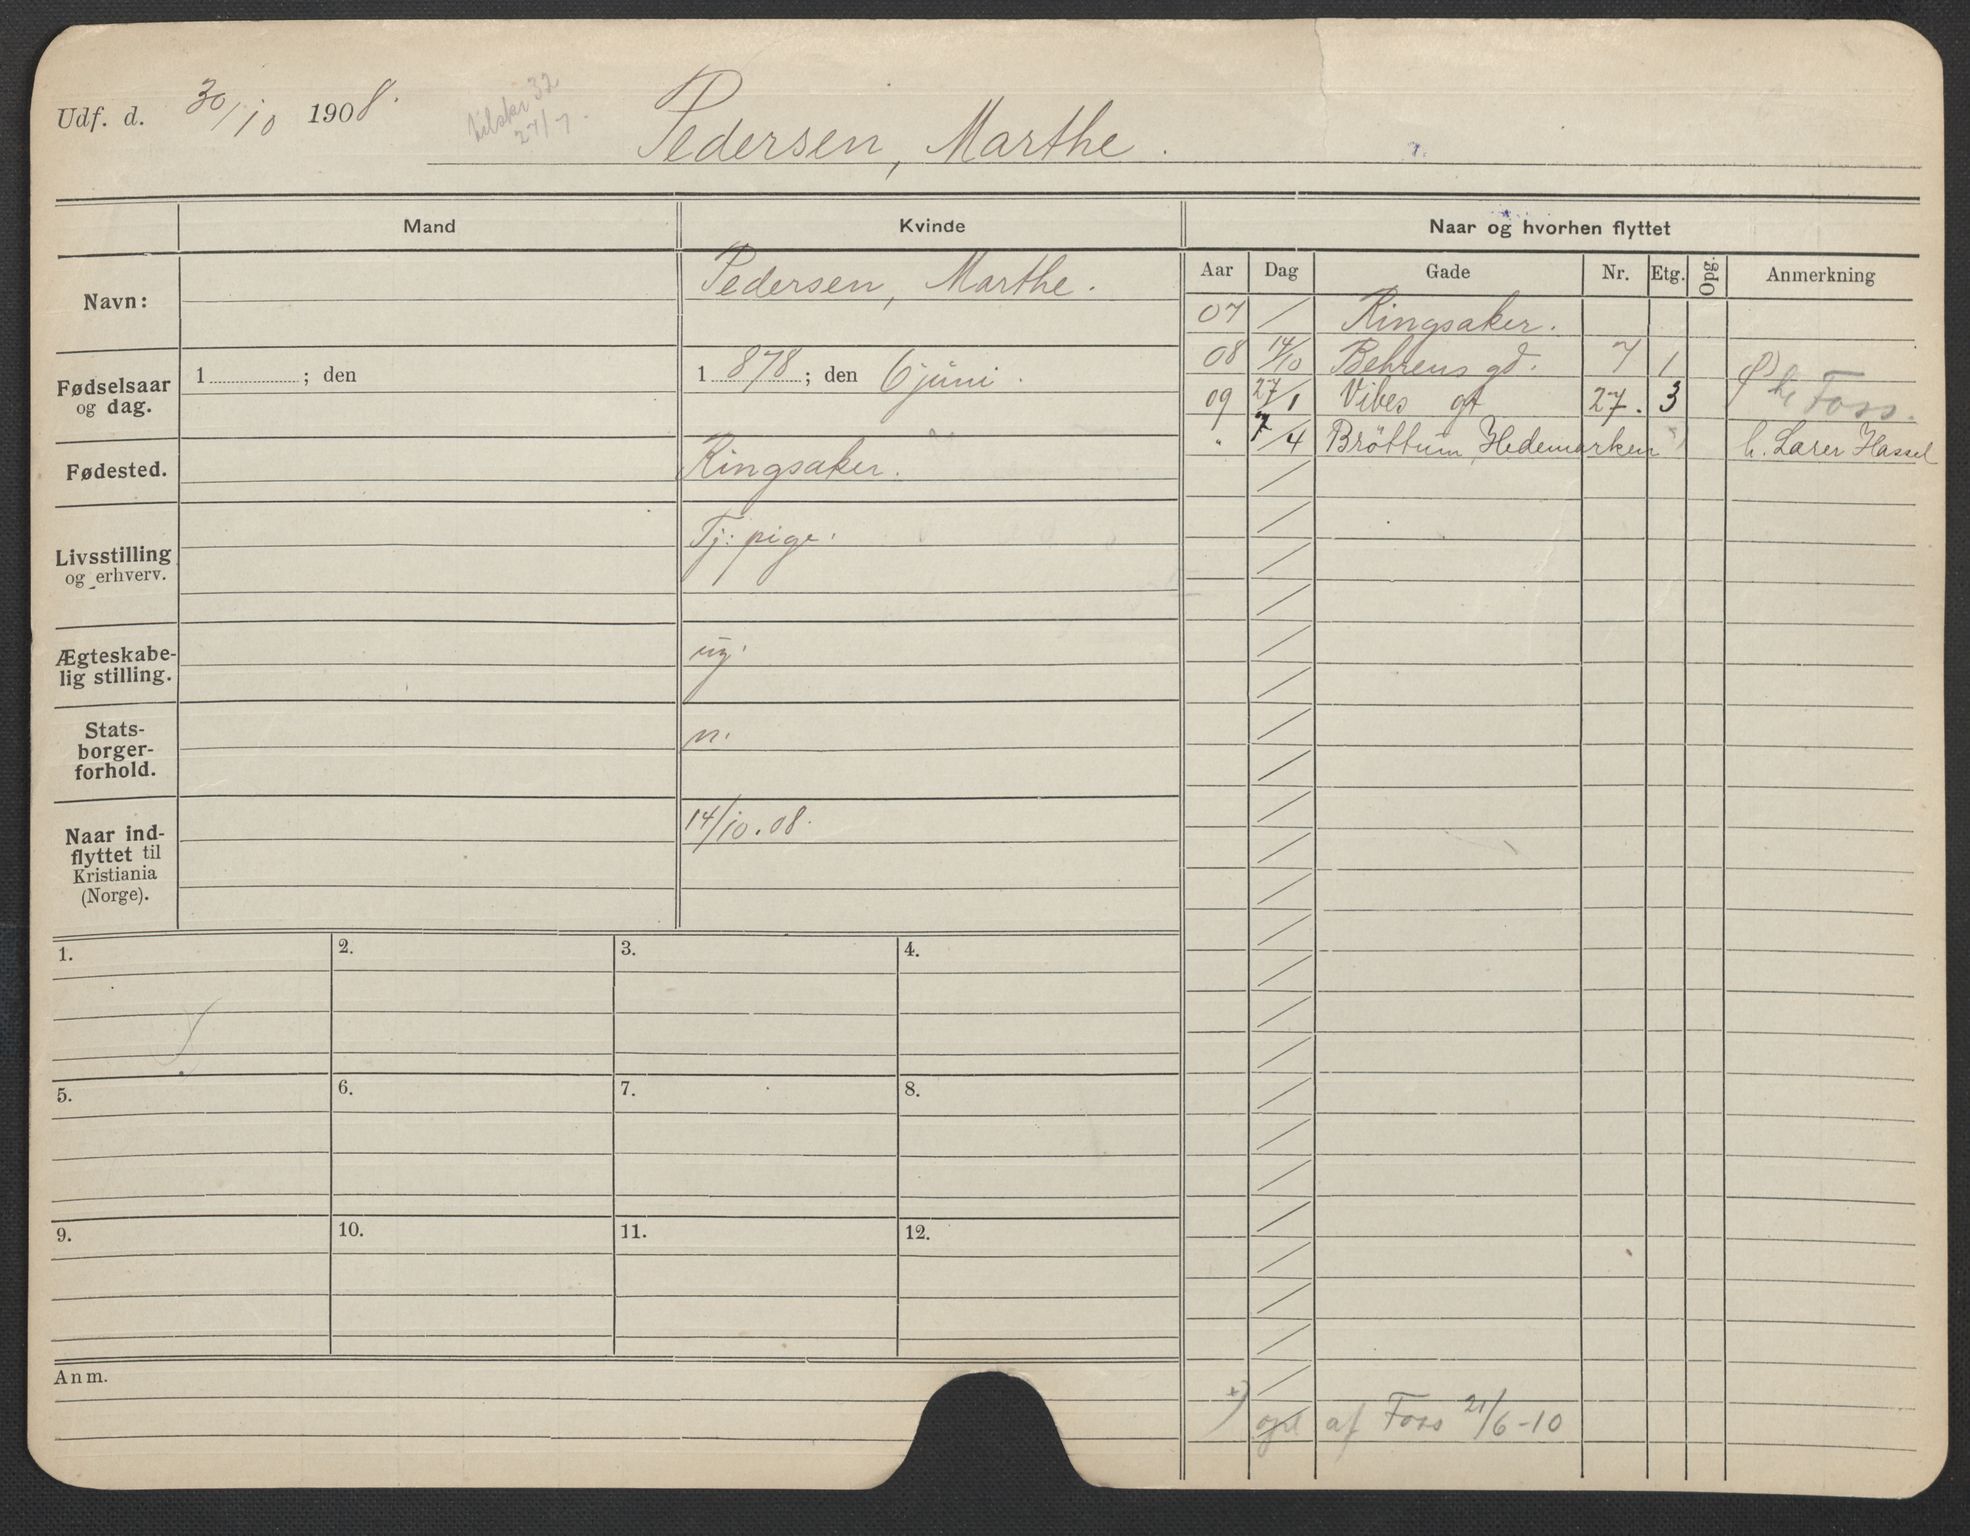 Udf. d. 30/10 1908.
32
27/7.
Pedersen, Marthe.
Mand
Kvinde
Naar og hvorhen flyttet
Navn:
Pedersen, Marthe.
Fødselsaar og dag.
1 ; den
1 878 ; den 6 juni.
Fødested.
Ringsaker.
Livsstilling og erhverv.
Tj: pige.
Ægteskabe-
lig stilling.
ug.
Stats-
borger-
forhold.
n.
Naar ind-
flyttet til
Kristiania
(Norge).
14/10.08.
Aar Dag Gade Nr. Etg. Opg. Anmerkning
07 / Ringsaker.
08 14/10 Behrens gd. 7 1
09 27/1 Vibes gt 27. 3 Foss.
" 7/4 Brøttum, Hedemarken h. Larer Hassel
1. 2. 3. 4.
5. 6. 7. 8.
9. 10. 11. 12.
Anm.
+) opl af Foss 21/6-10